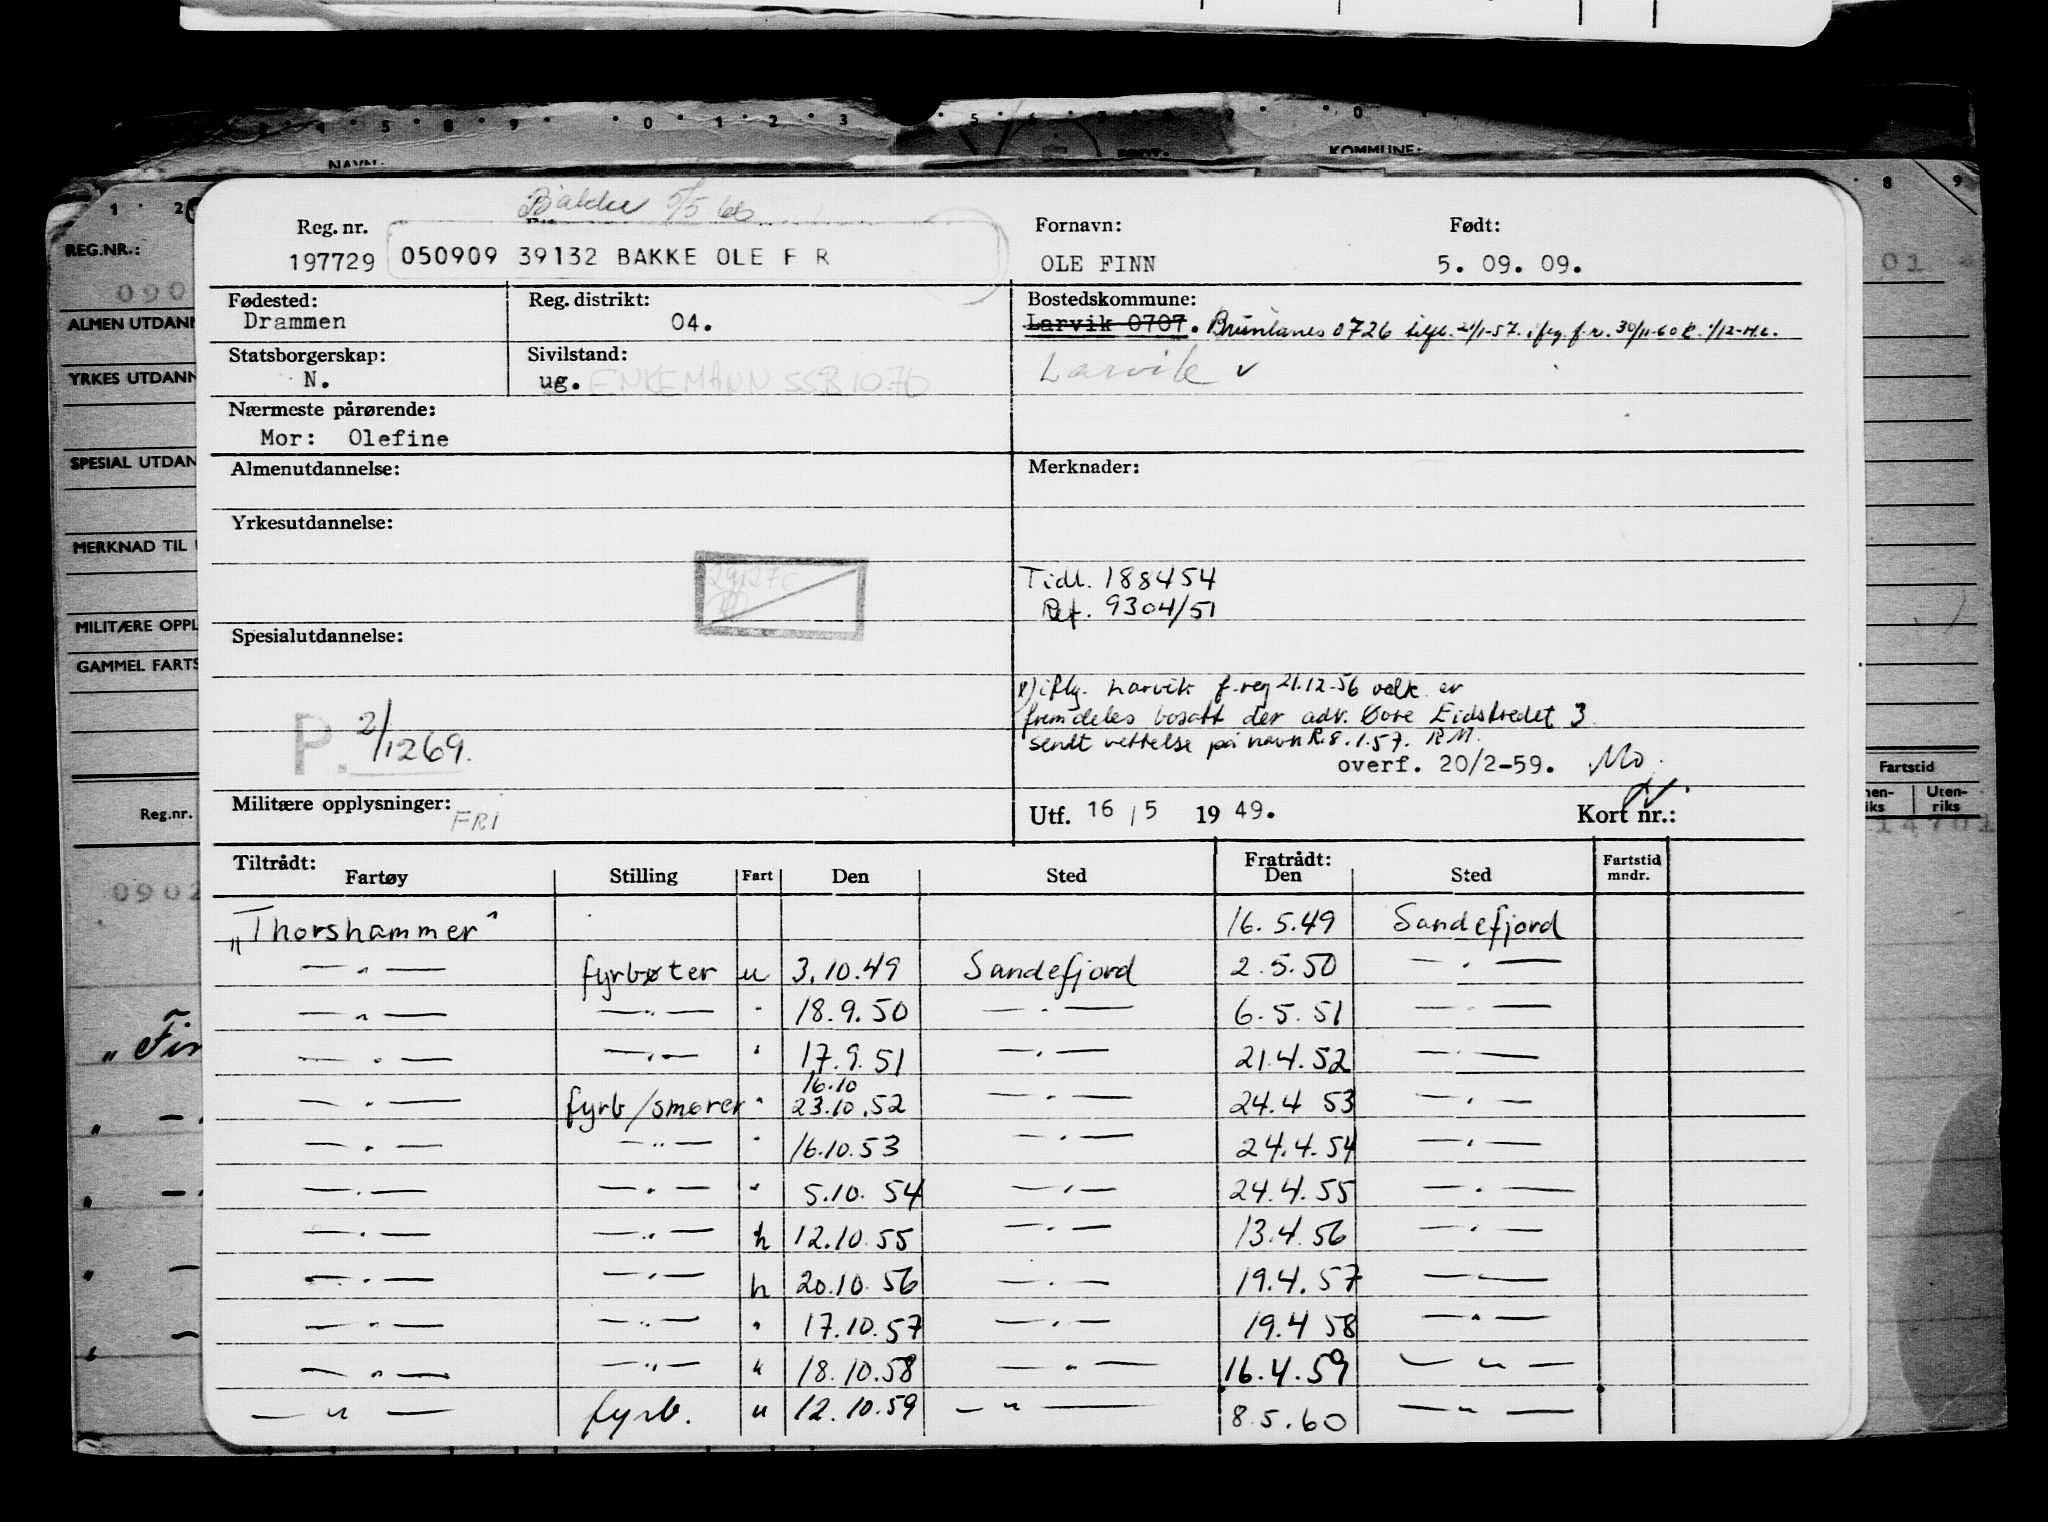 NAVN: KOMMUNE:
REG.NR.:
ALMEN UTDANN
YRKES UTDANN
SPESIAL UTDAN
MERKNAD TIL
MILITÆRE OPPL
GAMMEL FARTS
Reg.nr.
Fartstid
Uten-
riks
Reg. nr. Fornavn: Født:
197729 050909 39132 BAKKE OLE F R OLE FINN 5. 09. 09.
Fødested: Reg. distrikt: Bostedskommune:
Drammen 04. Larvik 0707. Brunlanes 0726
Statsborgerskap: Sivilstand:
N. ug. ENKEMANN SSB 1070 Larvik v
Nærmeste pårørende:
Mor: Olefine
Almenutdannelse: Merknader:
Yrkesutdannelse:
Tidl. 188454
Ref. 9304/51
Spesialutdannelse:
iflg. Larvik f.reg 21.12-56 vedk. er
fremdeles bosatt der adr. Øvre Eidstredet 3
sendt rettelse på navn R. 8.1.57. RM.
P. 2/1269.
overf. 20/2-59. Mo.
Militære opplysninger: FRI Utf. 16 / 5 19 49. Kort nr.:
Tiltrådt: Fratrådt:
Fartøy Stilling Fart Den Sted Den Sted Fartstid mndr.
„Thorshammer" 16. 5.49 Sandefjord
— " — fyrbøter u 3.10.49 Sandefjord 2.5.50 — " —
— " — — " — " 18.9.50 — " — 6.5.51 — " —
— " — — " — " 17.9.51 — " — 21.4.52 — " —
16.10
— " — fyrb/smører " 23.10.52 — " — 24.4 53 — " —
— " — — " — " 16.10.53 — " — 24.4.54 — " —
— " — — " — " 5.10. 54 — " — 24.4.55 — " —
— " — — " — h 12.10.55 — " — 13.4.56 — " —
— " — — " — h 20.10.56 — " — 19.4.57 — " —
— " — — " — " 17.10.57 — " — 19.4 58 — " —
— " — — " — " 18.10.58 — " — 16.4.59 — " —
— " — fyrb. u 12.10.59 — " — 8.5.60 — " —